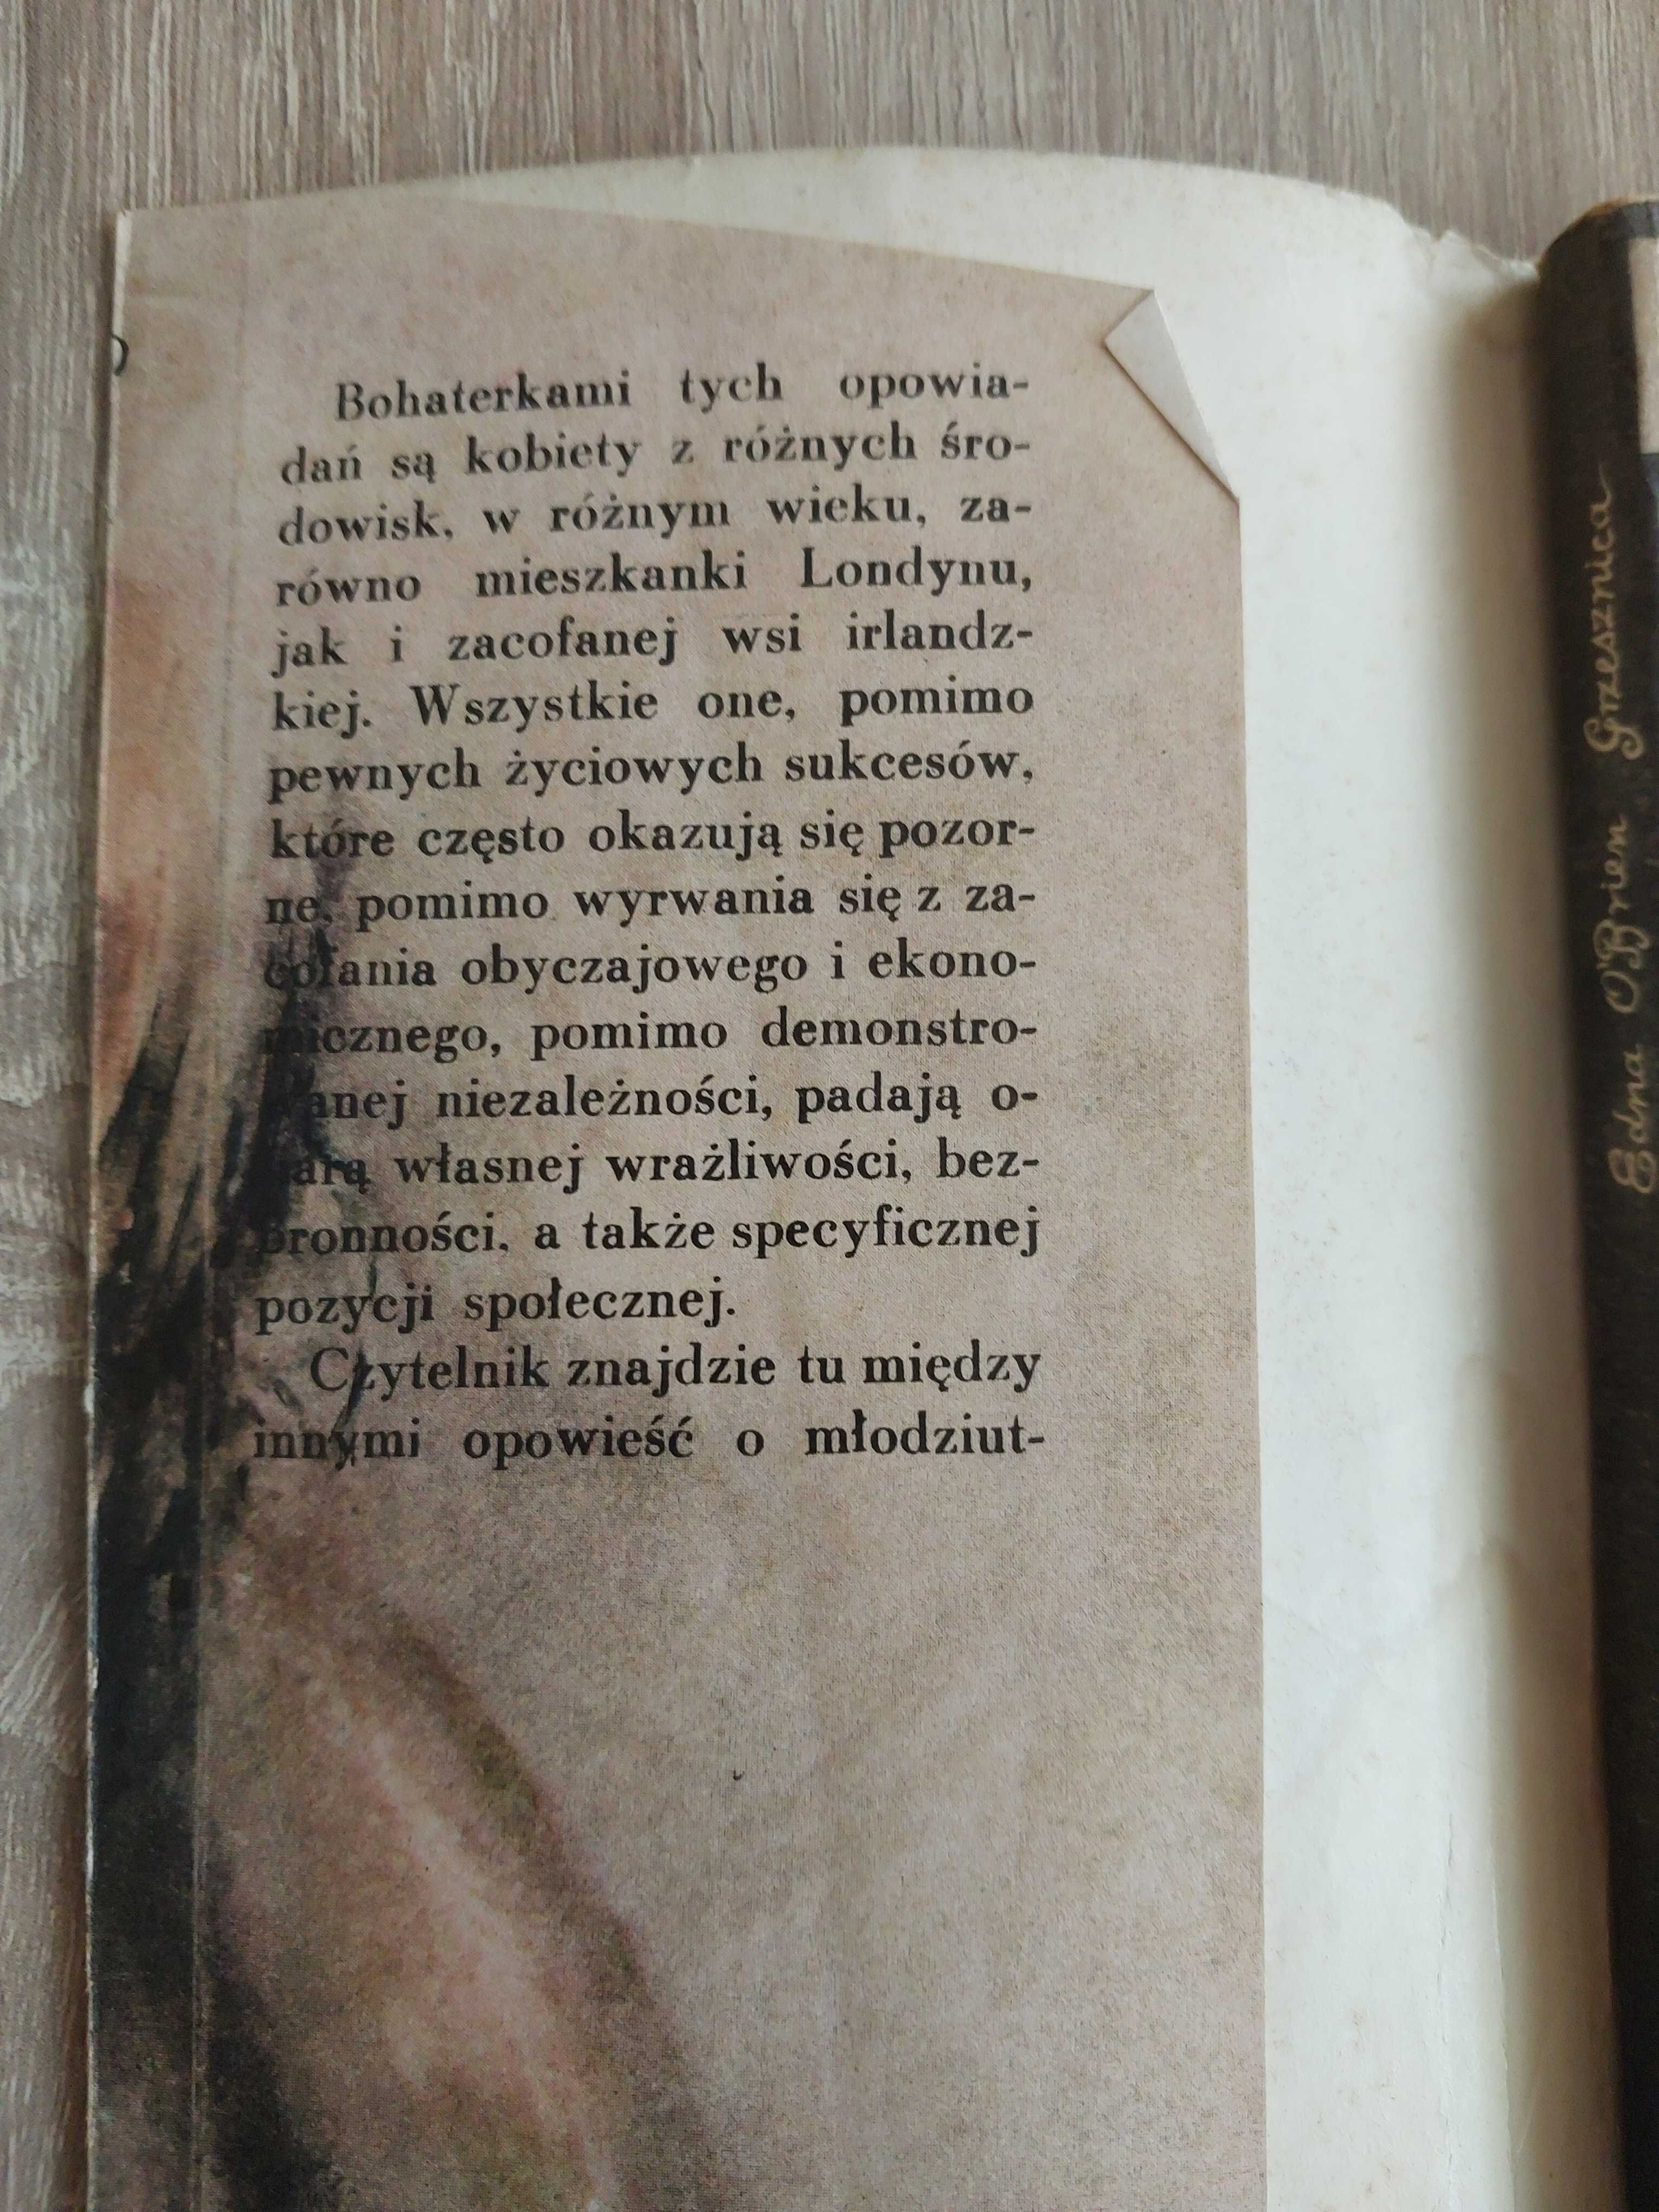 Bohaterkami tych opowia-
dań są kobiety z różnych śro-
dowisk, w różnym wieku, za-
równo mieszkanki Londynu,
jak i zacofanej wsi irlandz-
kiej. Wszystkie one, pomimo
pewnych życiowych sukcesów,
które często okazują się pozor-
ne, pomimo wyrwania się z za-
cofania obyczajowego i ekono-
micznego, pomimo demonstro-
wanej niezależności, padają o-
fiarą własnej wrażliwości, bez-
bronności, a także specyficznej
pozycji społecznej.
Czytelnik znajdzie tu między
innymi opowieść o młodziut-
Edna O'Brien Grzesznica